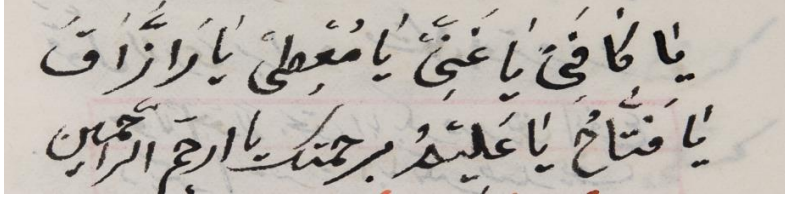 يَا كَافِىَ يَا غَنِىُّ يَا مُعْطِىْ يَا رَازَّاقَ
يَا فَتَّاحُ يَا عَلِيْمُ برحمتك يا ارحَمَ الرَّاحَمِين